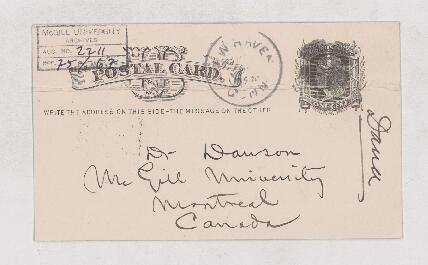 McGILL UNIVERSITY
ARCHIVES
ACC. NO. 2211
REF.
POSTAL CARD.
NEW HAVEN
CONN.
WRITE THE ADDRESS ON THIS SIDE-THE MESSAGE ON THE OTHER
Dana
Dr Dawson
McGill University
Montreal
Canada